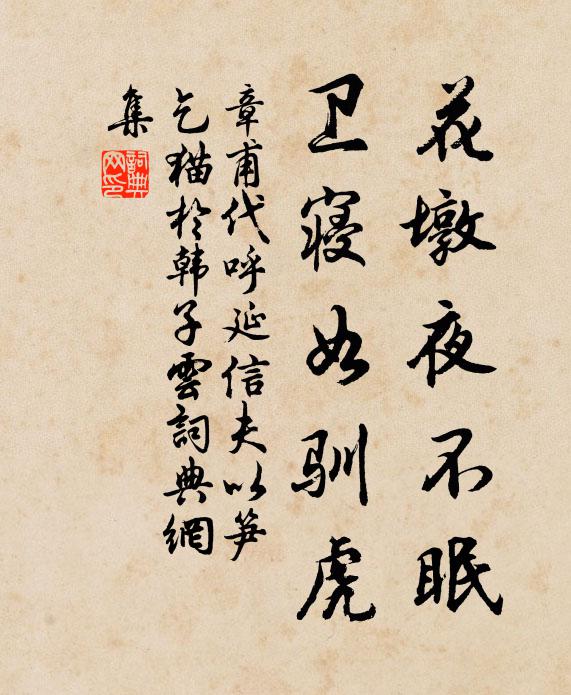 花墩夜不眠
卫寝如驯虎
章甫代呼延信夫以笋
乞猫于韩子雲詞典網
集
詞典
网印